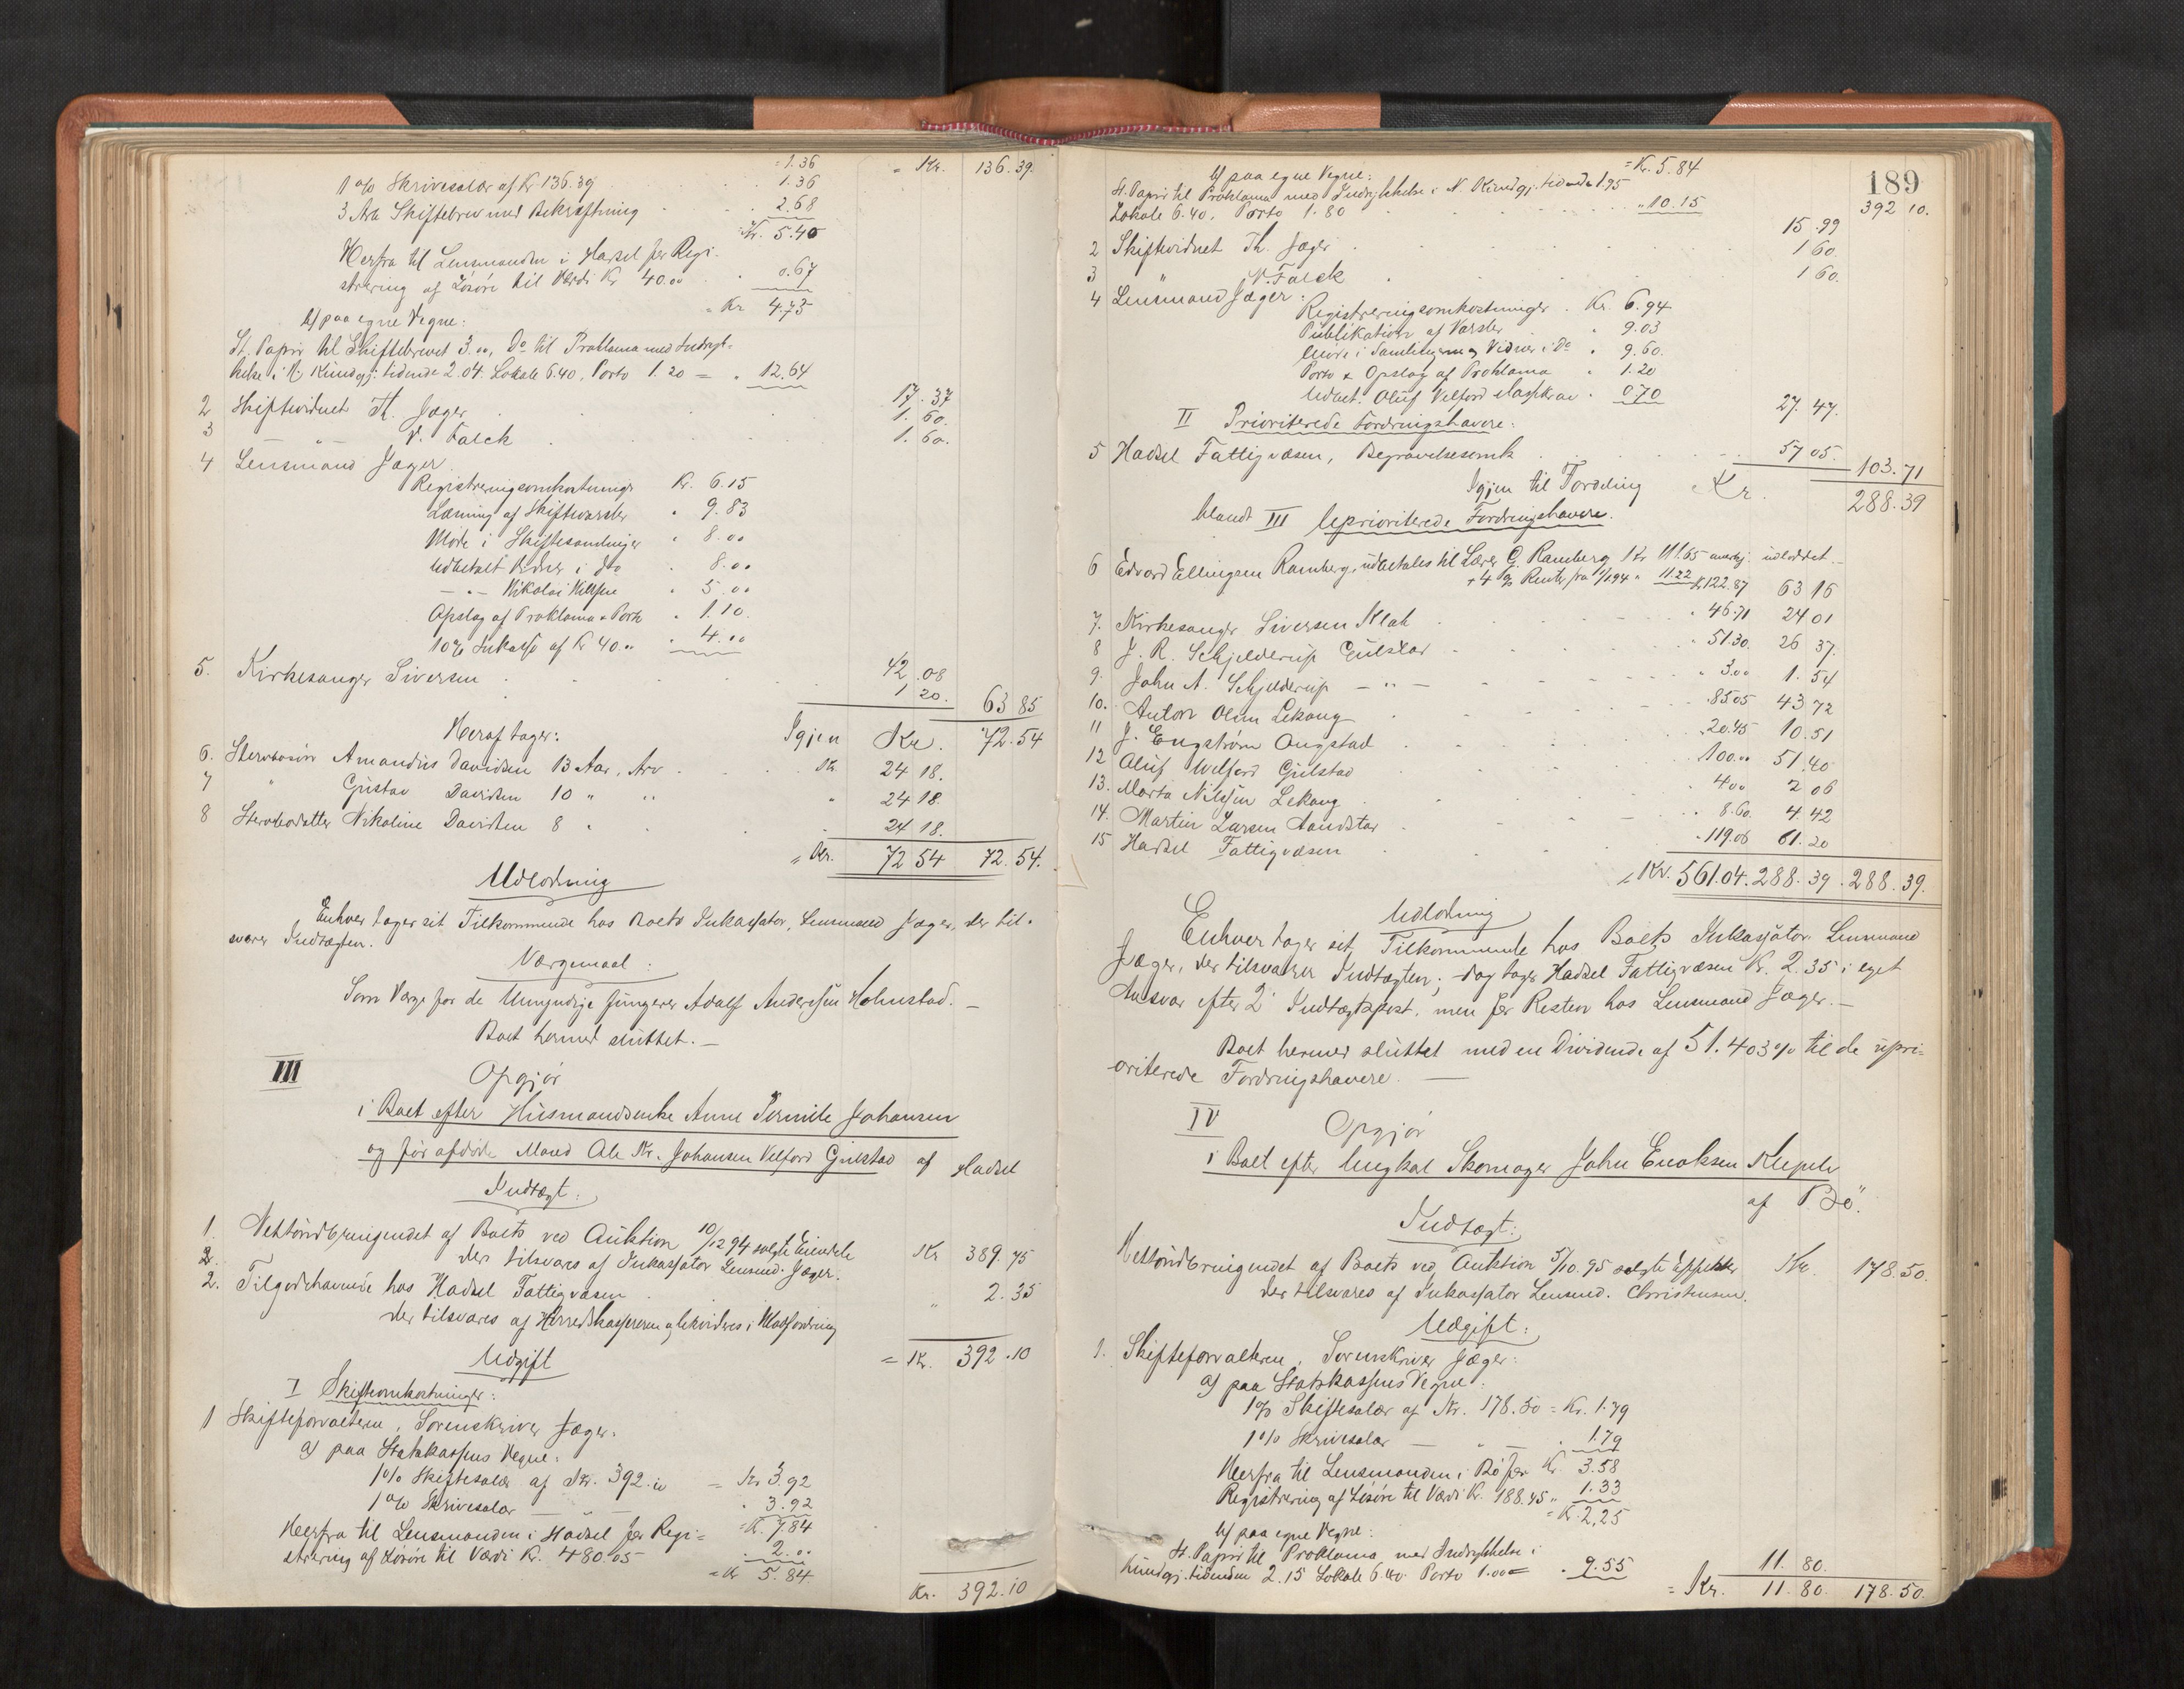 = 1.36 " Kr. 136.39.
1 % Skrivesalær af Kr. 136.39 . 1.36
3 Ark Skiftebrev med Bekræftning . 2.68
Kr. 5.40
Herfra til Lensmanden i Hadsel for Regi-
strering af Løsøre til Værdi Kr 40.00 . 0.67
= Kr 4.73
b) paa egne Vegne:
St. Papir til Skiftebrevet 3.00, Do til Proklama med Indryk-
kelse i N. Kundgj. tidende 2.04. Lokale 6.40, Porto 1.20 = " 12.64
17.37
2 Skiftevidnet Th. Jæger 1.60.
3 — " — N. Falck . 1.60.
4 Lensmand Jæger
Registreringsomkostninger Kr. 6.15
Læsning af Skiftevarsler " 9.83
Møde i Skiftesamlinger " 8.00
Udbetalt Vidner i do " 8.00
— " — Nikolai Nilssen " 5.00
Opslag af Proklama & Porto " 1.10.
10% Inkasso af Kr 40.00 " 4.00
42.08
5. Kirkesanger Siversen . 1 20. 63 85
Igjen Kr. 72.54
Heraf tager:
6. Stervbosøn Amandus Davidsen 13 Aar, Arv . Kr 24 18.
7 " Gustav Davidsen 10 " " " 24 18.
8 Stervbodatter Nikoline Davidsen 8 " . 24 18.
= Kr. 72 54 72.54.
Udlodning
Enhver tager sit Tilkommende hos Boets Inkassator, Lensmand Jæger, der til-
svarer Indtægten.
Værgemaal:
Som Værge for de Umyndige fungerer Adolf Anderssen Holmstad. —
Boet hermed sluttet. —
III Opgjør
i Boet efter Husmandsenke Anne Pernille Johansen
og før afdøde Mand Ole Kr. Johansen Velford Gulstad af Hadsel
Indtægt:
1. Nettoudbringendet af Boets ved Auktion 10/12 94 solgte Eiendele Kr 389.75
2. der tilsvares af Inkassator Lensmd. Jæger.
2. Tilgodehavende hos Hadsel Fattigvæsen " 2.35
der tilsvares af Herredskassereren og likvideres i Modfordring
= Kr. 392.10
Udgift
I Skifteomkostninger:
1 Skifteforvalteren, Sorenskriver Jæger:
a) paa Statskassens Vegne:
1% Skiftesalær af Kr. 392.10 = Kr 3.92
1% Skrivesalær — " — " 3.92
= Kr. 7.84
Herfra til Lensmanden i Hadsel for Regi-
strering af Løsøre til Værdi Kr. 480.05 . 2.00
= Kr 5.84
Kr. 392.10
189
b) paa egne Vegne: = Kr. 5.84
St. Papir til Proklama med Indrykkelse i N. Kundgj. tidende 1.95 392 10.
Lokale 6.40. Porto 1.80 " 10.15
15.99
2 Skiftevidnet Th. Jæger . 1 60.
3 " N. Falck . 1 60.
4 Lensmand Jæger:
Registreringsomkostninger . Kr. 6.94
Publikation af Varsler " 9.03
Møde i Samlingerne & Vidner i Do " 9.60.
Porto & Opslag af Proklama " 1.20
Udbet. Oluf Velford 0.70
27. 47.
II Prioriterede Fordringshavere:
5 Hadsel Fattigvæsen, Begravelsesomk. . 57 05. 103.71
Igjen til Fordeling Kr. 288.39
blandt III Uprioriterede Fordringshavere.
6 Edvard Ellingsen Ramberg, udbetales til Lærer G. Ramberg Kr 111.65 udloddet —
+ 4 % Rente fra " 11.22 Kr 122.87 63 16
7. Kirkesanger Siversen Klah . " 46.71 24 01
8 J. R. Schjelderup Gulstad . " 51.30. 26 37.
9. John A. Schjelderup — " — " 3.00 1. 54
10. Anton Olsen Lekang . 85.05 43 72
11 J. Engstrøm Ongstad . 20.45 10.51
12 Oluf Velford Gulstad . 100.00 51.40
13. Marta Nilssen Lekang . " 4.00 2 06
14. Martin Larsen Sandstad . " 8.60. 4.42
15 Hadsel Fattigvæsen . " 119.06 61.20
= Kr. 561.04. 288.39. 288.39.
Udlodning
Enhver tager sit Tilkommende hos Boets Inkassator Lensmand
Jæger, der tilsvarer Indtægten; dog tager Hadsel Fattigvæsen Kr. 2.35 i eget
Ansvar efter 2' Indtægtspost, men for Resten hos Lensmand Jæger. —
Boet hermed sluttet med en Dividende af 51.403 % til de upri-
oriterede Fordringshavere. —
IV Opgjør
i Boet efter Ungkarl Skomager John Enoksen Klepele
af Bø.
Indtægt:
Nettoudbringendet af Boets ved Auktion 5/10.95 solgte Effekter Kr. 178.50.
der tilsvares af Inkassator Lensmd. Christensen.
Udgift:
1. Skifteforvalteren, Sorenskriver Jæger:
a) paa Statskassens Vegne:
1% Skiftesalær af Kr. 178.50 = Kr. 1.79
1% Skrivesalær — " — . 1.79
Kr. 3.58
Herfra til Lensmanden i Bø for
Registrering af Løsøre til Værdi Kr. 188.45 " 1.33
= Kr. 2,25
b) paa egne Vegne:
St. Papir til Proklama med Indrykkelse i
Kundgj. tidenden 2.15 Lokale 6.40. Porto 1.00 = . 9.55 11 80.
= Kr. 11. 80. 178.50.